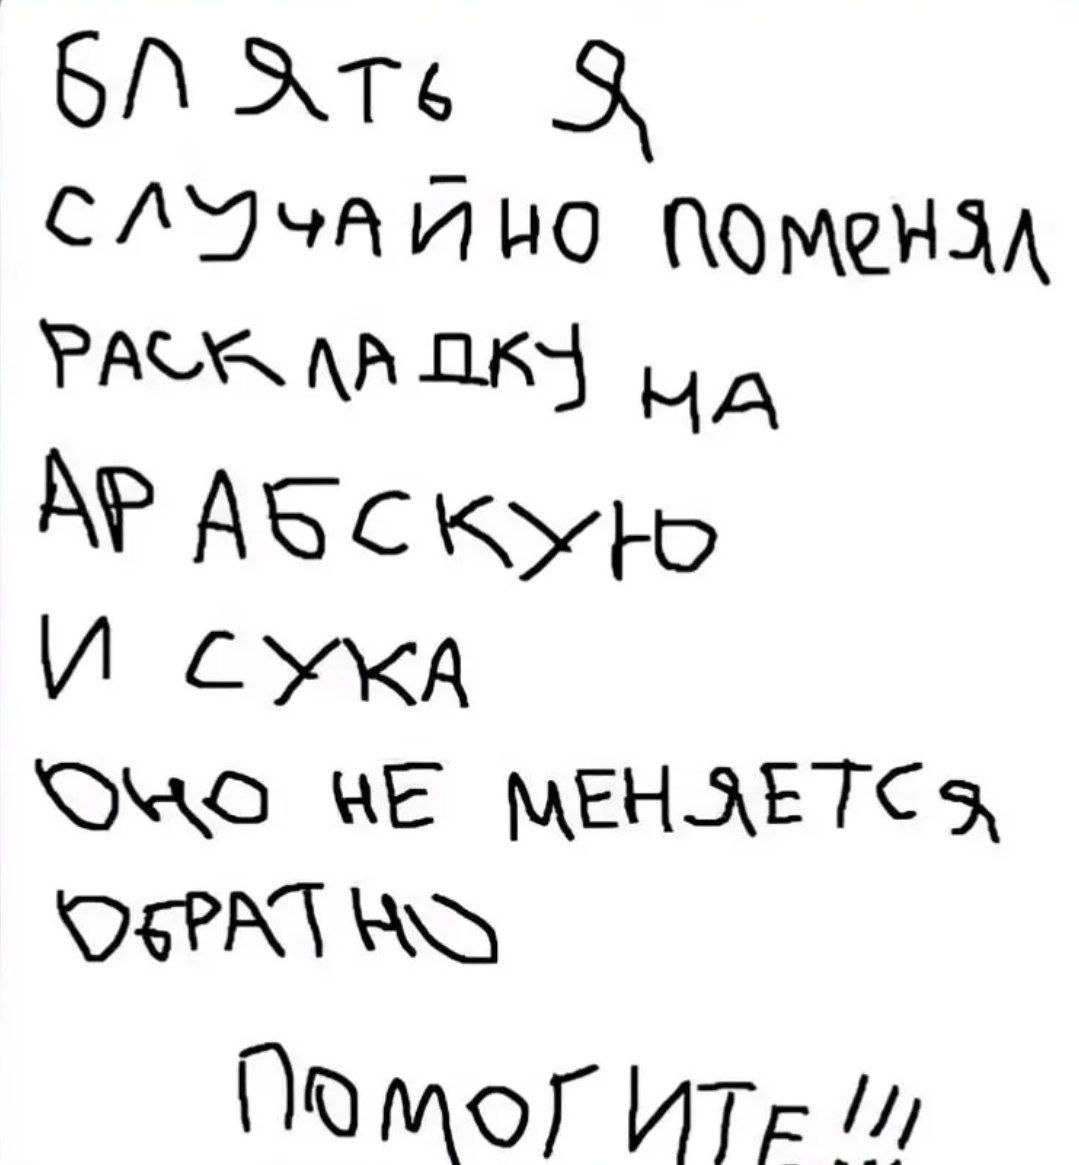 БЛЯТЬ Я
СЛУЧАЙНО ПОМЕНЯЛ
РАСКЛАДКУ НА
АРАБСКУЮ
И СУКА
ОНО НЕ МЕНЯЕТСЯ
ОБРАТНО
ПОМОГИТЕ!!!